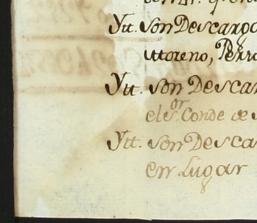 Ytt. Son Descargo
Moreno, Perro
Ytt. Son Descar
el s.or Conde de S
Ytt. Son Desca
en Lugar